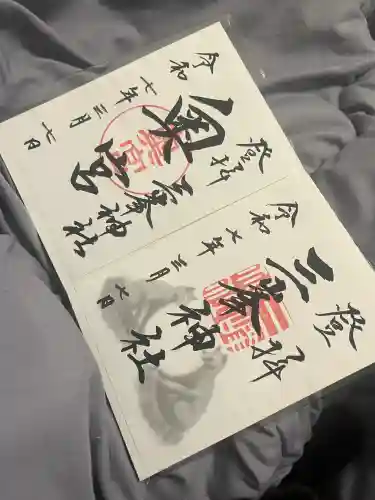 登拝
奥宮
三峯神社
令和七年三月七日
登拝
三峯神社
令和七年三月七日